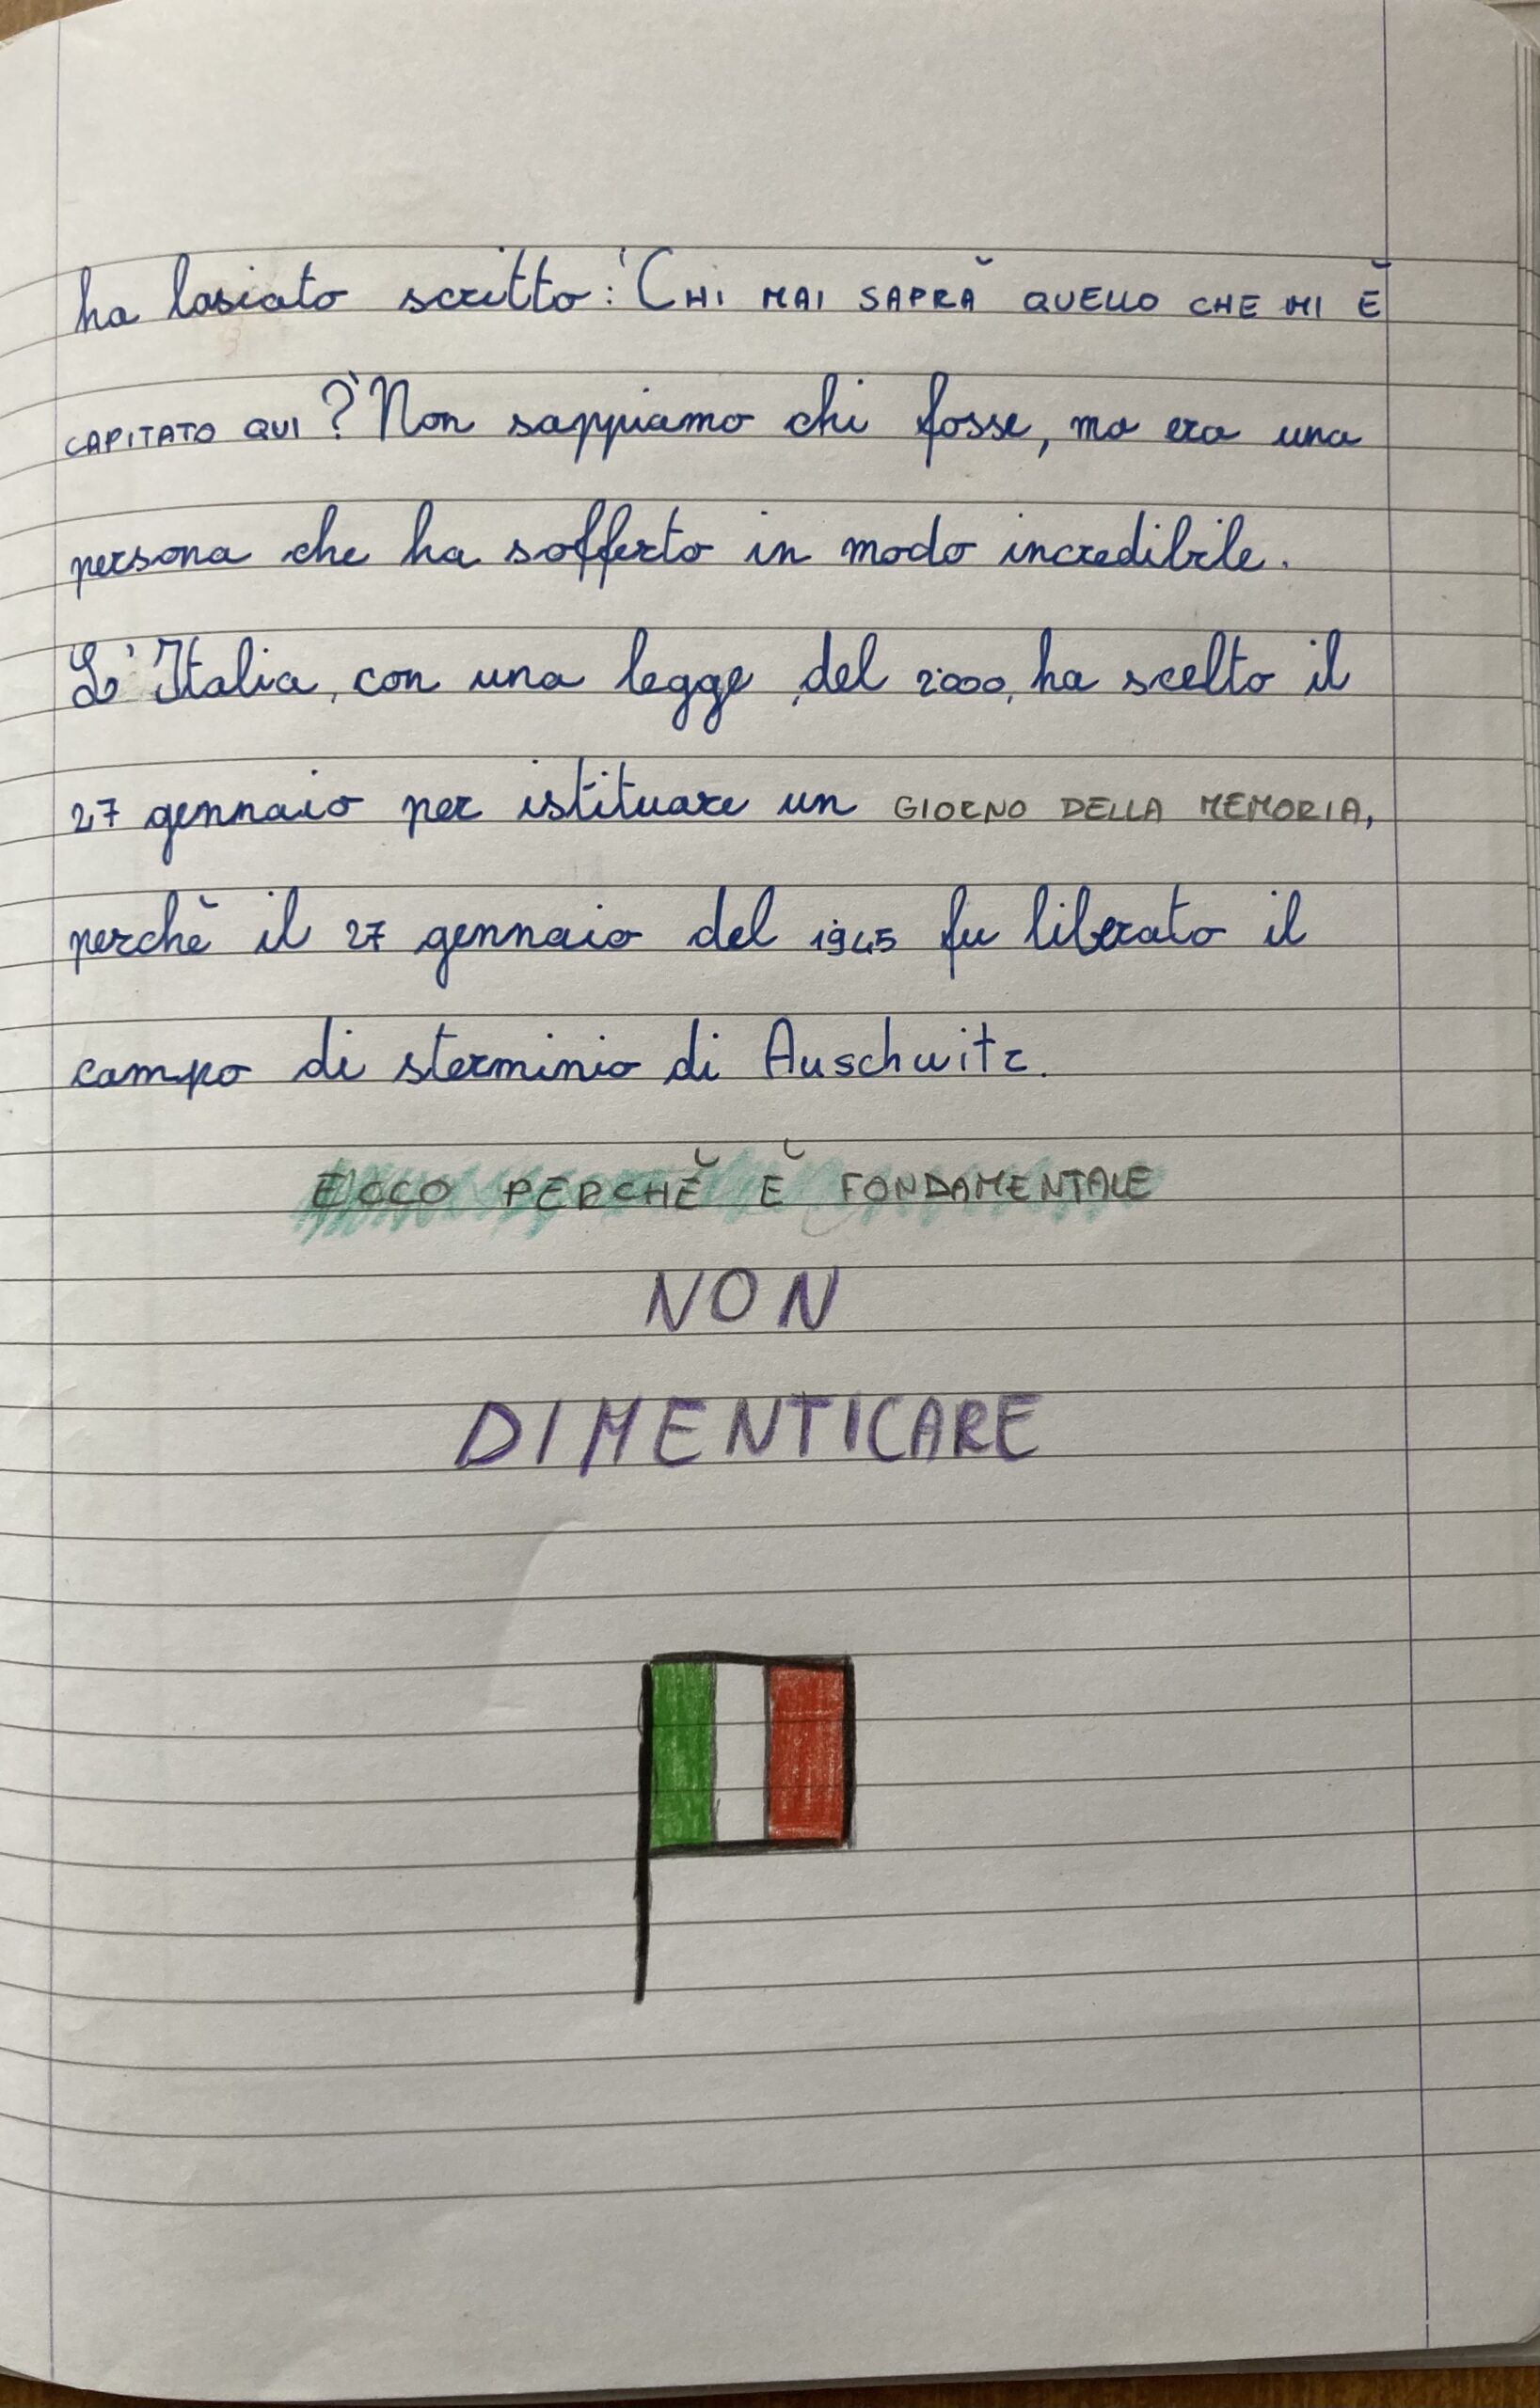 ha lasciato scritto: "CHI MAI SAPRÀ QUELLO CHE MI È
CAPITATO QUI?" Non sappiamo chi fosse, ma era una
persona che ha sofferto in modo incredibile.
L'Italia, con una legge, del 2000, ha scelto il
27 gennaio per istituare un GIORNO DELLA MEMORIA,
perchè il 27 gennaio del 1945 fu liberato il
campo di sterminio di Auschwitz.
ECCO PERCHÈ È FONDAMENTALE
NON
DIMENTICARE